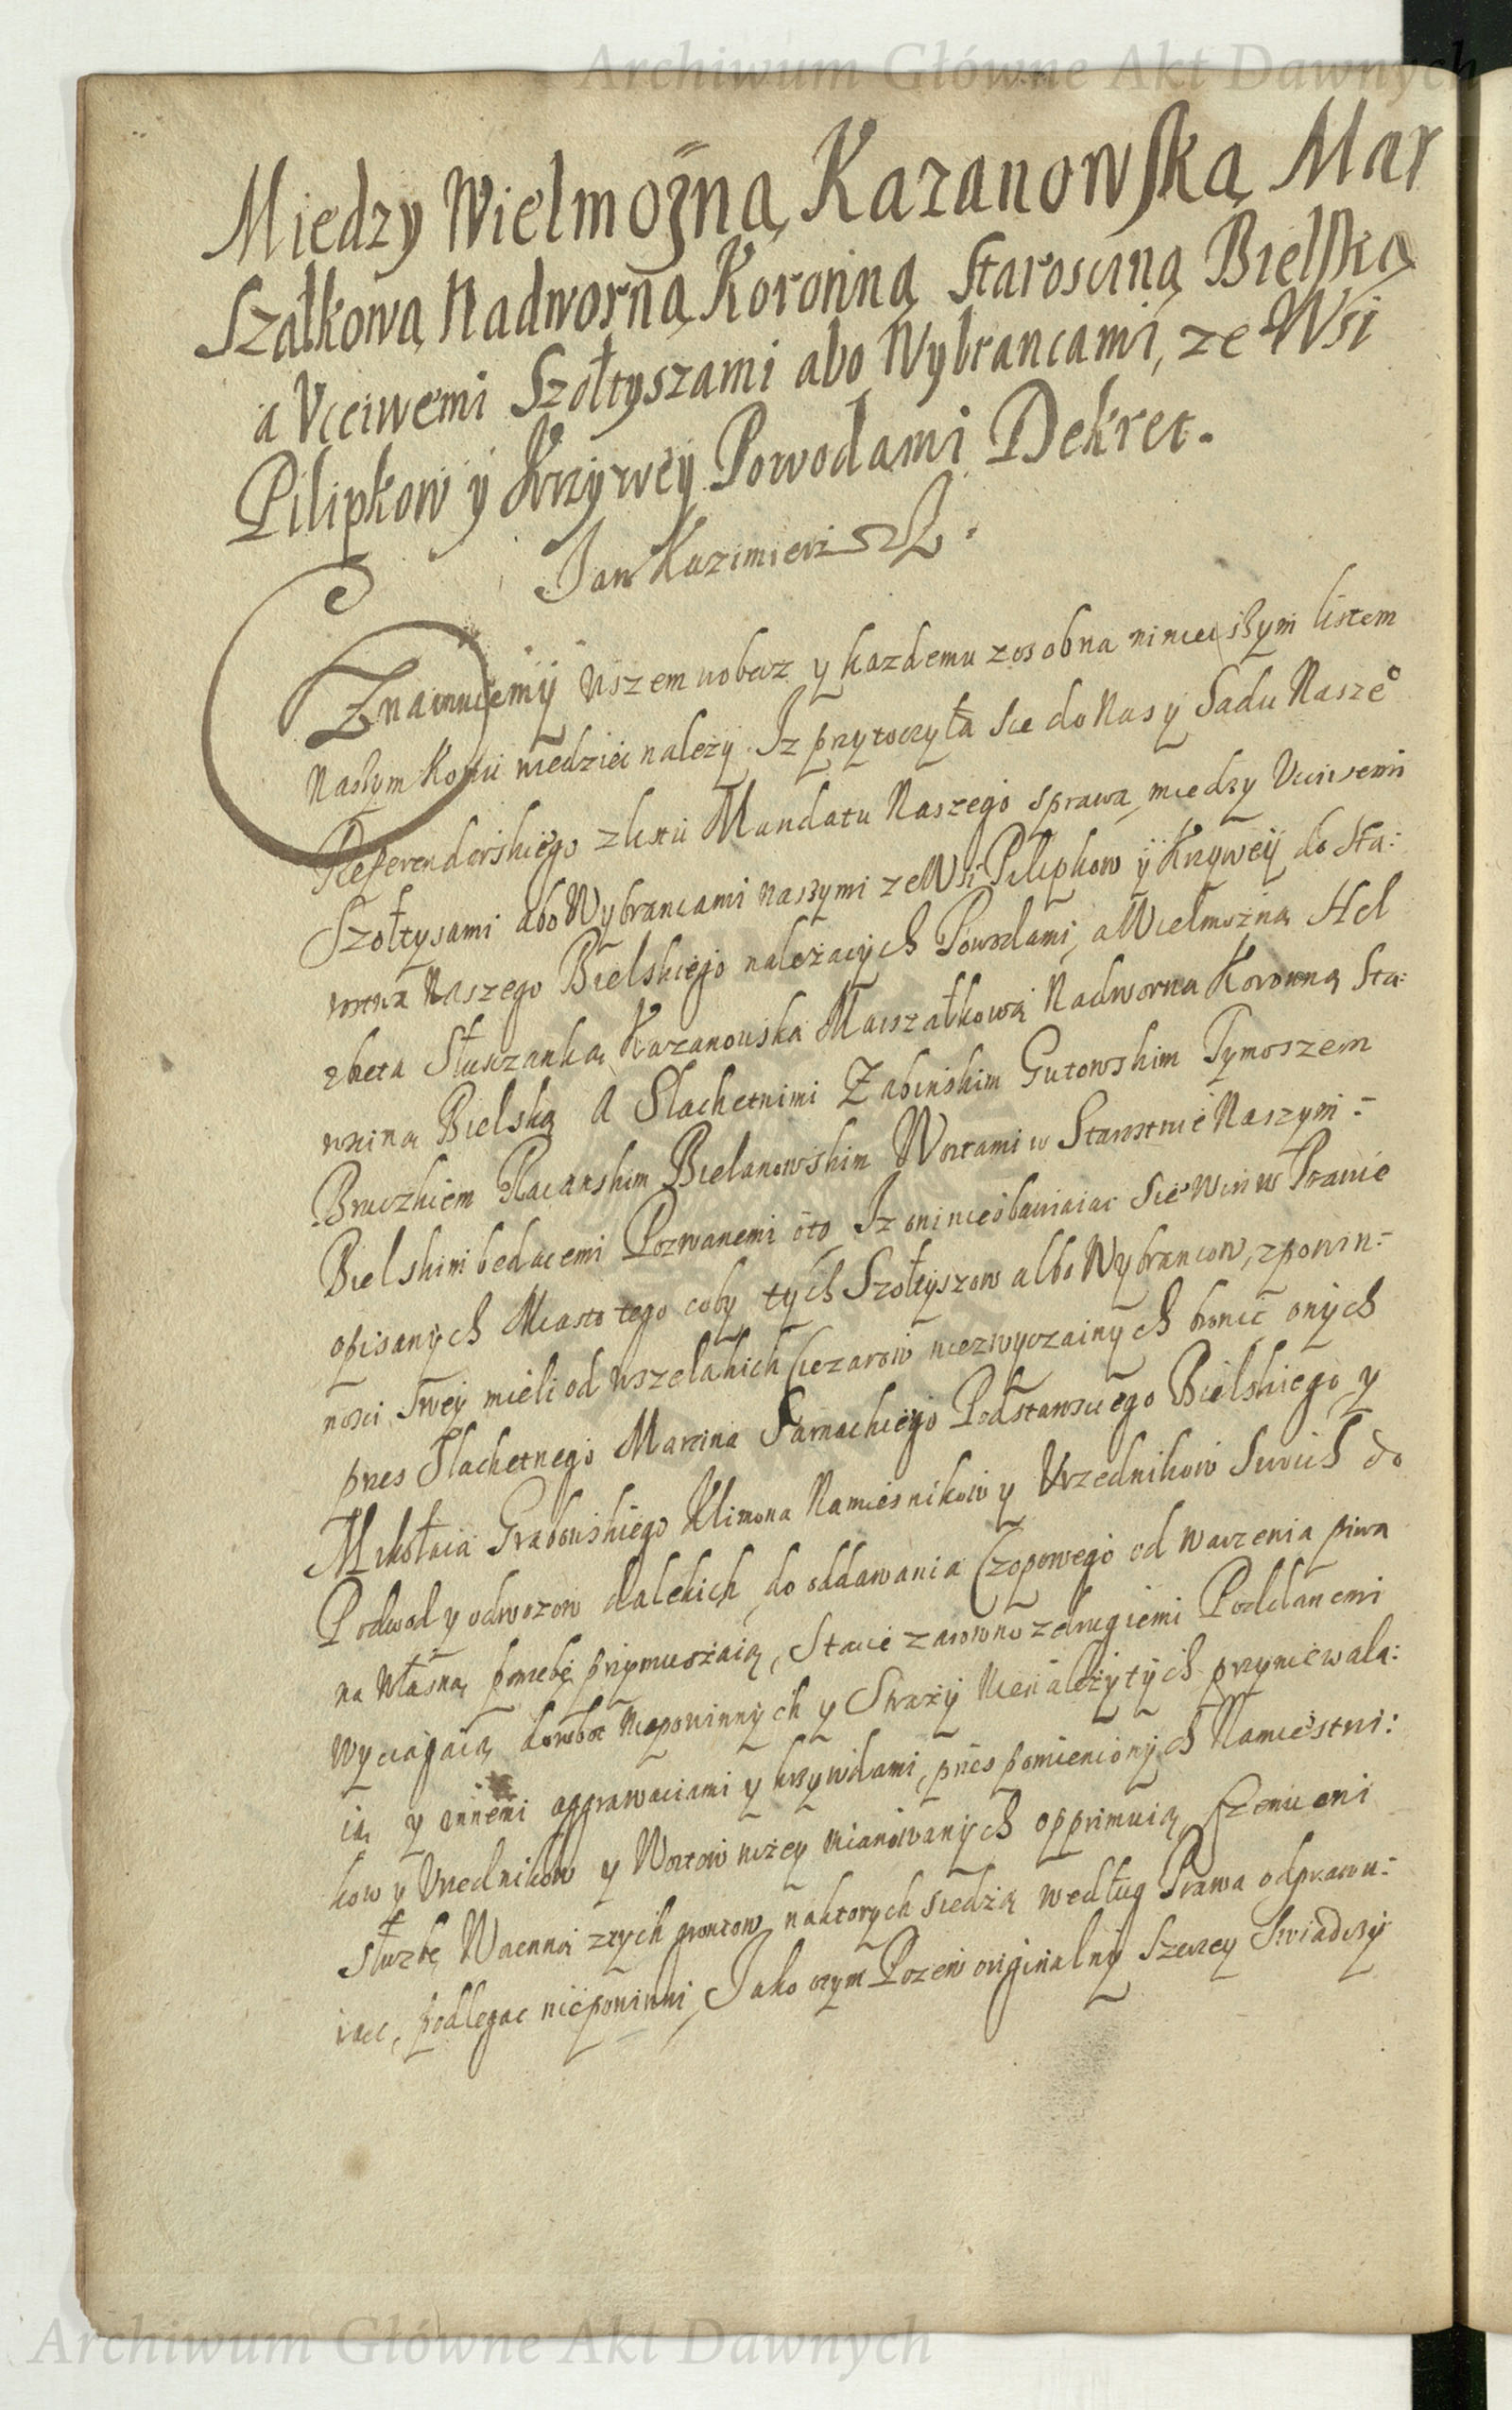 Archiwum Główne Akt Dawnych
Miedzy Wielmożną Kazanowską Mar
Szałkową Nadworną Koronną Starosciną Bielską
a Vcciwemi Szołtyszami abo Wybrancami, ze Wsi
Pilipkow y Krzywey Powodami Dekret.
Jan Kazimierz
Znaimuiemy wszem wobecz y kazdemu zosobna ninieiszym listem
Naszym komu wiedziec nalezy. Iz przytoczyła sie do Nas y Sadu Nasze°
Referendarskiego Mandatu Naszego sprawa, miedzy Vcciwemi
Szołtysami abo Wybrancami naszymi ze Wsi Pilipkow y Krzywey do Sta:
rostwa Naszego Bielskiego nalezacych Powodami, a Wielmozną Hel
zbeta Słuszanką Kazanowska Marszałkową Nadworna Koronną Sta:
roscina Bielską A Slachetnimi Zabinskim Gutowskim Tymoszem
Bruczkiem Bielanowskim Woitami w Starostwie Naszym =
Bielskim bedacemi Pozwanemi oto, Iz oni nieobawiaiac sie Win w Prawie
opisanych Miasto tego coby tych Szołtyszow albo Wybrancow, z powin=
nosci swey mieli od wszelakich Ciezarow niezwyczainych bronic onych
przes Slachetnego Marcina Sarnackiego Podstarosciego Bielskiego y
Mikołaia Grabowskiego Klimona Namiesnikow y Vrzednikow Swoich do
Podwod y odwozow dalekich, do oddawania Czopowego od warzenia piwa
na własną potrzebę przymuszaią, Stacie zarowno z drugiemi Poddanemi
wyciągaią, do robot Niepowinnych y Strazy Nienalezytych przyniewala:
ią y innemi aggrawaciami y krzywdami, przes pomienionych Namiestni:
kow y Vrzednikow y Woitow nizey mianowanych opprimuią, czemu oni
słuzbę Woenną z tych gruntow, na ktorych siedzą według Prawa odprawu=
iąc, podlegac niepowinni, Jako o tym Pozew originalny szerzey swiadczy
Archiwum Główne Akt Dawnych